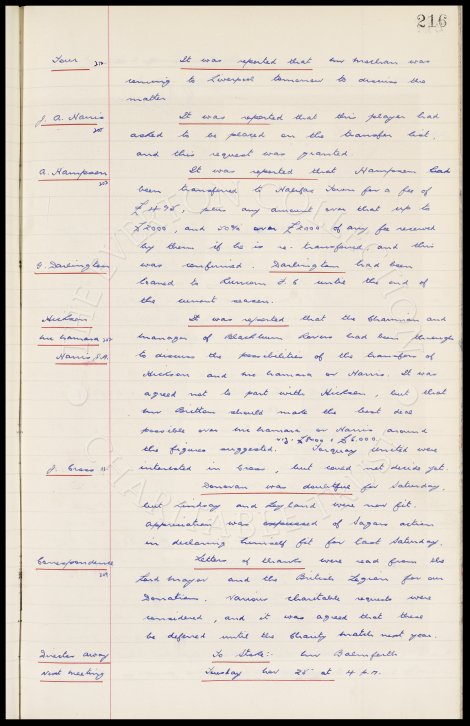 216
Tour 202 It was reported that Mr Meehan was
coming to Liverpool tomorrow to discuss the
matter
J. A. Harris 205 It was reported that this player had
asked to be placed on the transfer list.
and this request was granted.
A. Hampson 203 It was reported that Hampson had
been transferred to Halifax Town for a fee of
£ plus any amount over that up to
£2000, and 50% over £2000 of any fee received
by them if he is re-transferred, and this
G. Darlington was confirmed. Darlington had been
loaned to Runcorn F.C until the end of
the current season.
Hickson It was reported that the Chairman and
McNamara 205 manager of Blackburn Rovers had been through
Harris J.A. to discuss the possibilities of the transfer of
Hickson and McNamara or Harris. It was
agreed not to part with Hickson, but that
Mr Britton should make the best deal
possible over McNamara or Harris around
viz. £8000 & £6,000.
the figures suggested. Torquay United were
J. Gross interested in Gross, but could not decide yet.
Donovan was doubtful for Saturday,
but Lindsay and Leyland were now fit.
Appreciation was expressed of Sagars action
in declaring himself fit for last Saturday.
Correspondence 209 Letters of thanks were read from the
Lord Mayor and the British Legion for our
Donations. Various charitable requests were
considered, and it was agreed that these
be deferred until the Charity match next year.
Director away To Stoke:- Mr Balmforth
Next meeting Tuesday Nov 25 at 4 p.m.